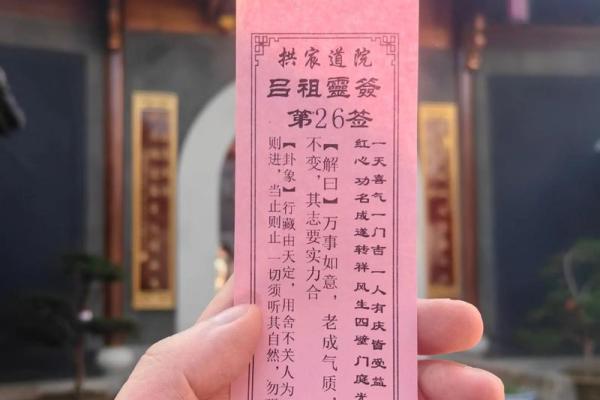 拱宸道院
吕祖靈簽
第26签
一天喜气一门吉一人有庆皆受益
红心功名成遂转祥风生四壁门庭光
【解曰】万事如意，老成气质，
不变，其志要实力合
【卦象】行藏由天定，用舍不关人为
则进，当止则止一切须听其自然，勿